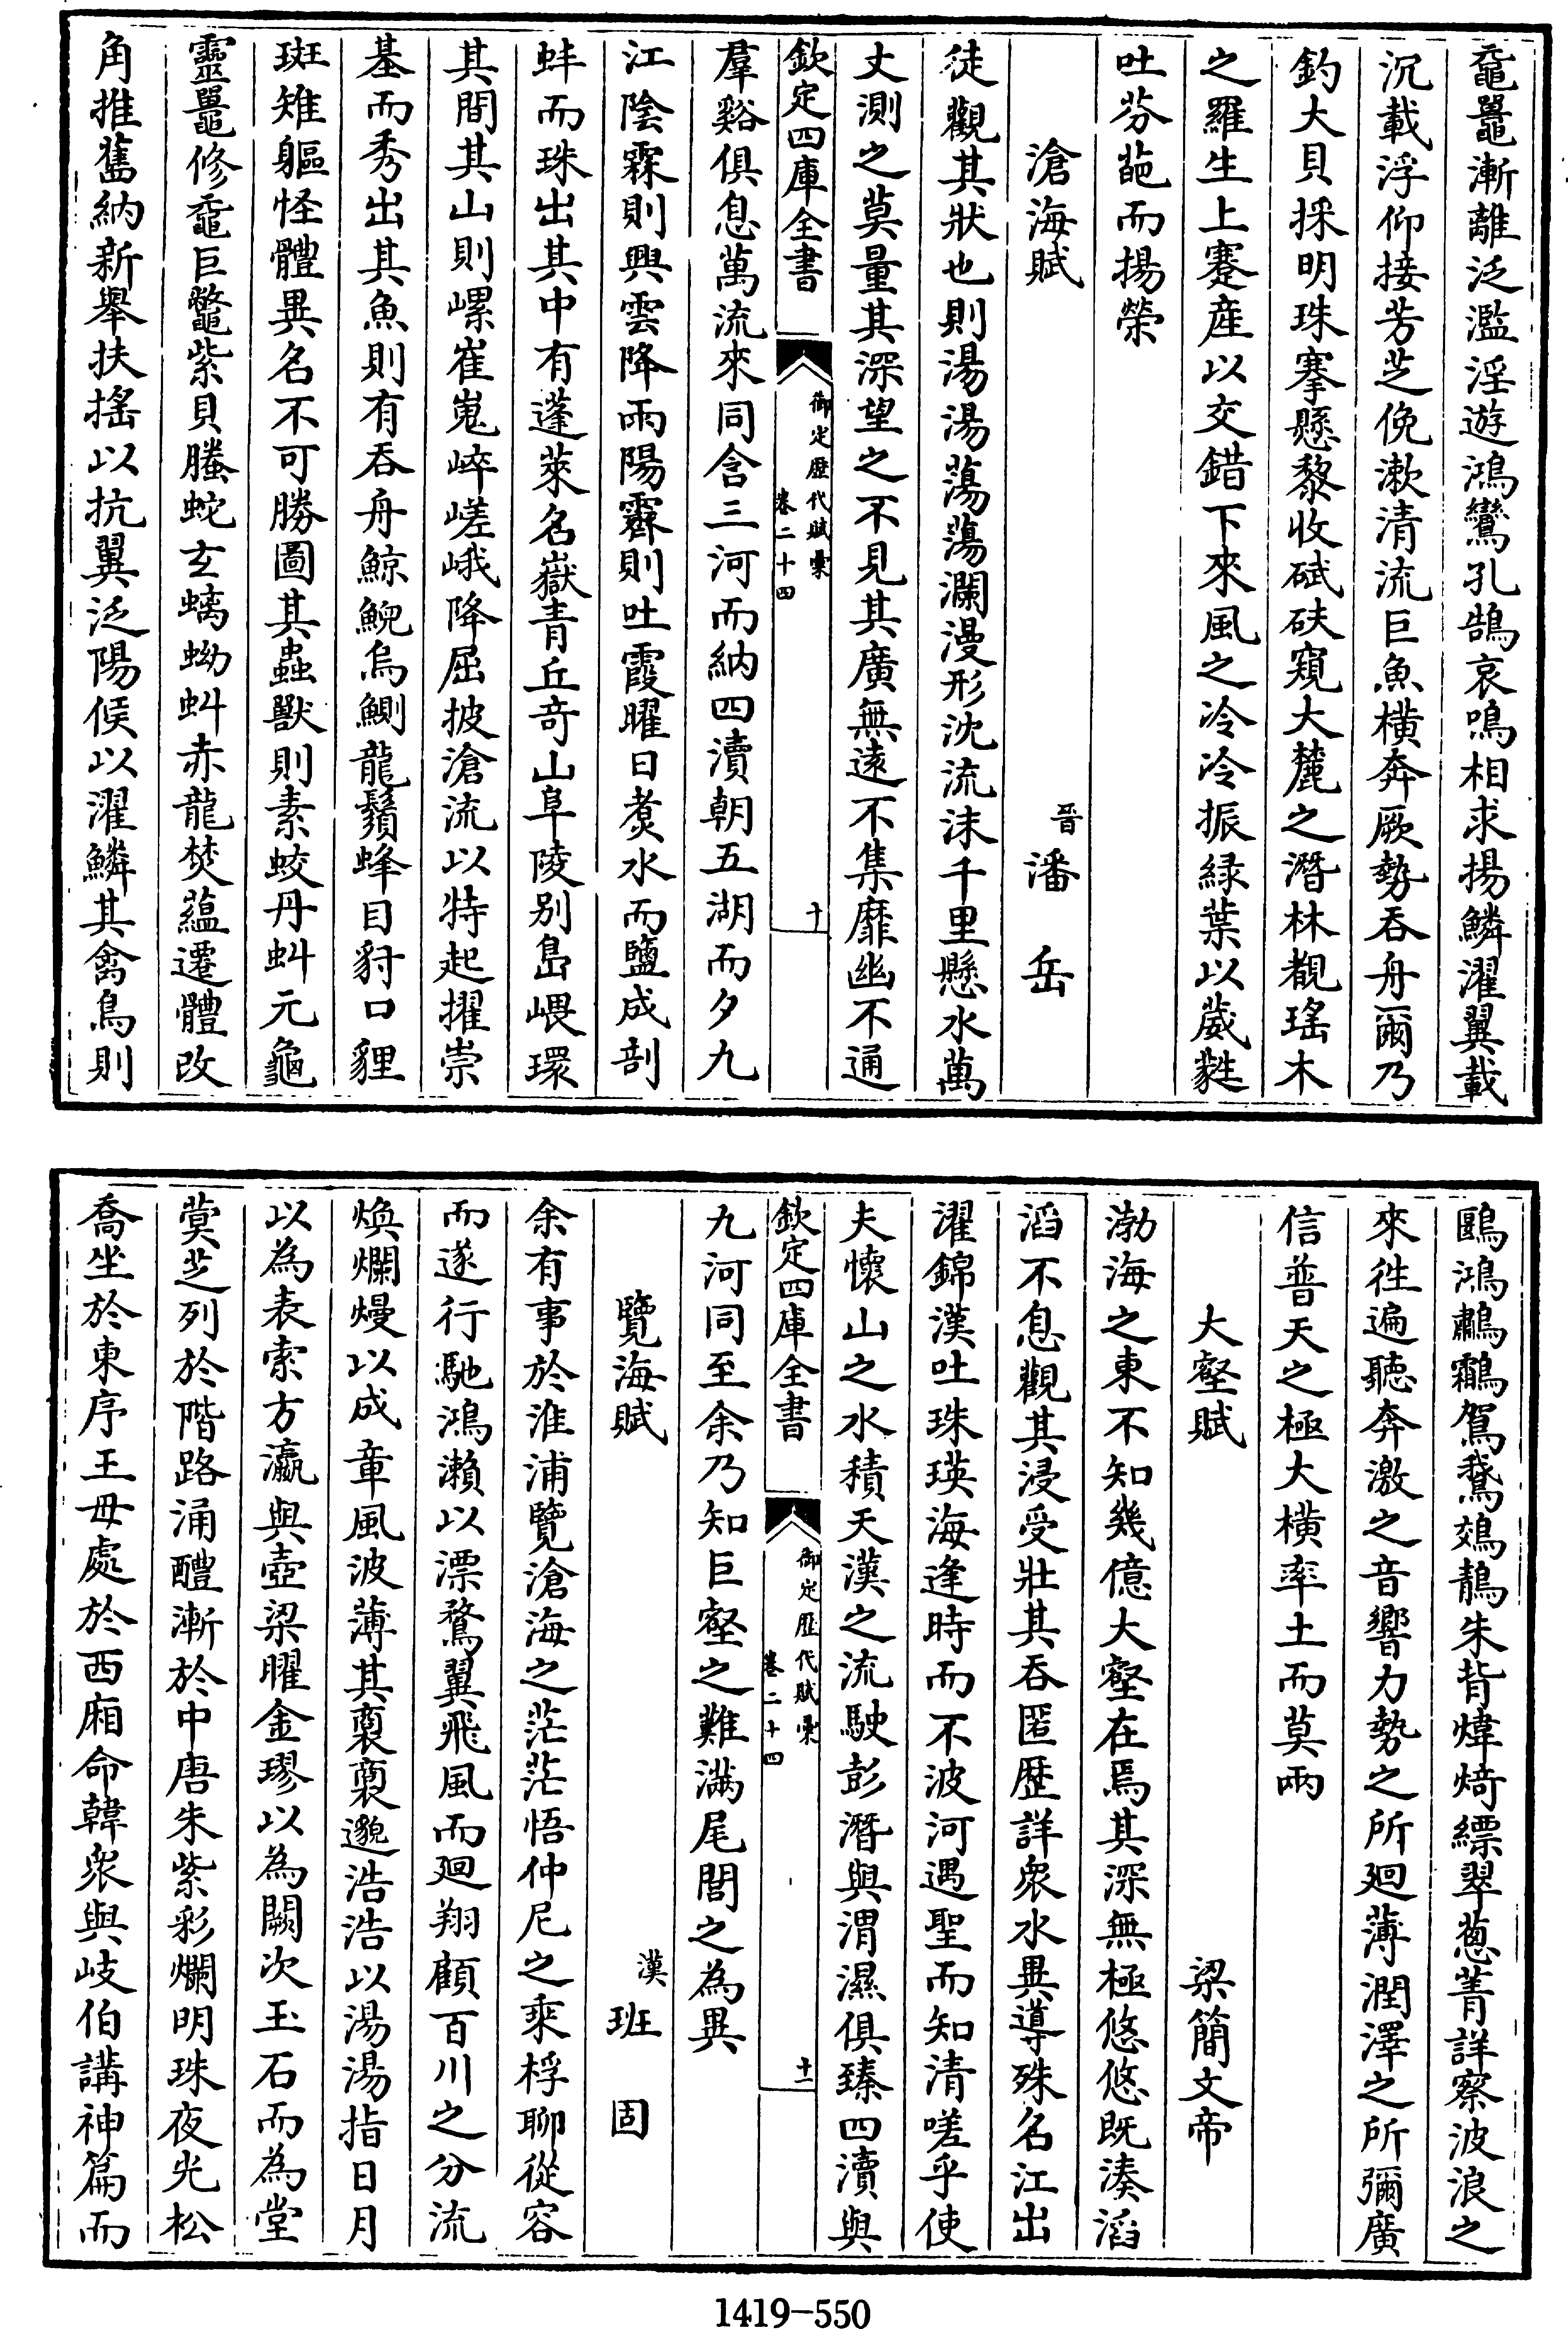 黿鼉漸離泛濫淫遊鴻鸞孔鵠哀鳴相求揚鱗濯翼載
沉載浮仰接芳芝俛漱清流巨魚橫奔厥勢吞舟爾乃
釣大貝採明珠搴懸黎收碔砆窺大麓之潛林覩瑤木
之羅生上蹇產以交錯下來風之泠泠振綠葉以葳蕤
吐芬葩而揚榮
滄海賦
晉潘岳
徒觀其狀也則湯湯蕩蕩瀾漫形沈流沫千里懸水萬
丈測之莫量其深望之不見其廣無遠不集靡幽不通
欽定四庫全書
御定歷代賦彙
卷二十四
十
羣谿俱息萬流來同含三河而納四瀆朝五湖而夕九
江陰霖則興雲降雨陽霽則吐霞曜日煑水而鹽成剖
蚌而珠出其中有蓬萊名嶽青丘奇山阜陵別島㟪環
其間其山則嵺崔嵬崒嵯峨降屈披滄流以特起擢崇
基而秀出其魚則有吞舟鯨鯢烏鰂龍鬚蜂目豺口貍
斑雉軀怪體異名不可勝圖其蟲獸則素蛟丹虯元龜
靈鼉修黿巨鼈紫貝螣蛇玄螭蚴虯赤龍焚蘊遷體改
角推舊納新舉扶搖以抗翼泛陽侯以濯鱗其禽鳥則
鷗鴻鷫鸘駕鵞鵁鶄朱背煒煌縹翠蔥菁詳察波浪之
來往遍聽奔激之音響力勢之所廻薄潤澤之所彌廣
信普天之極大橫率土而莫兩
大壑賦
梁簡文帝
渤海之東不知幾億大壑在焉其深無極悠悠既湊滔
滔不息觀其浸受壯其吞匿歷詳衆水異導殊名江出
濯錦漢吐珠瑛海逢時而不波河遇聖而知清嗟乎使
夫懷山之水積天漢之流駛彭潛與渭濕俱臻四瀆與
欽定四庫全書
御定歷代賦彙
卷二十四
十一
九河同至余乃知巨壑之難滿尾閭之為異
覽海賦
漢班固
余有事於淮浦覽滄海之茫茫悟仲尼之乘桴聊從容
而遂行馳鴻瀨以漂騖翼飛風而廻翔顧百川之分流
煥爛熳以成章風波薄其裒裒邈浩浩以湯湯指日月
以為表索方瀛與壺梁曜金璆以為闕次玉石而為堂
蓂芝列於階路涌醴漸於中唐朱紫彩爛明珠夜光松
喬坐於東序王母處於西廂命韓衆與岐伯講神篇而
1419-550